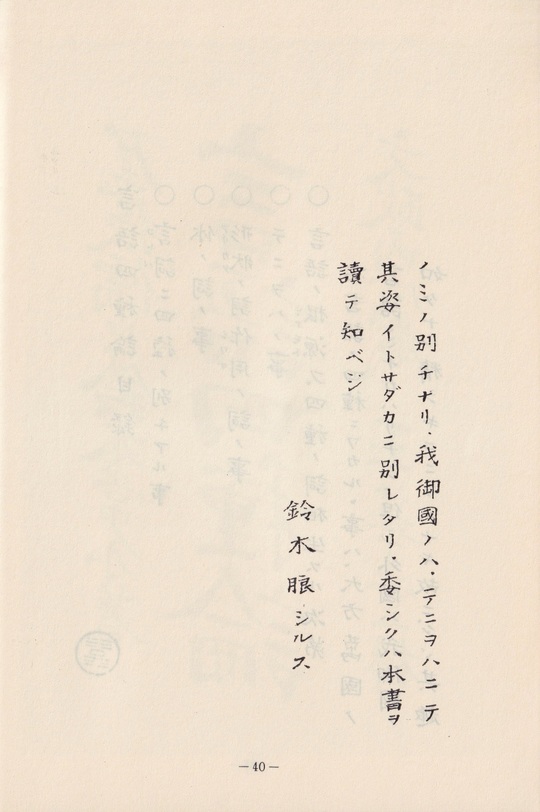 ノミノ別チナリ．我御國ノハ．テニヲハニテ
其姿イトサダカニ別レタリ．委シクハ本書ヲ
讀テ知ベシ
鈴木朖シルス
－40－